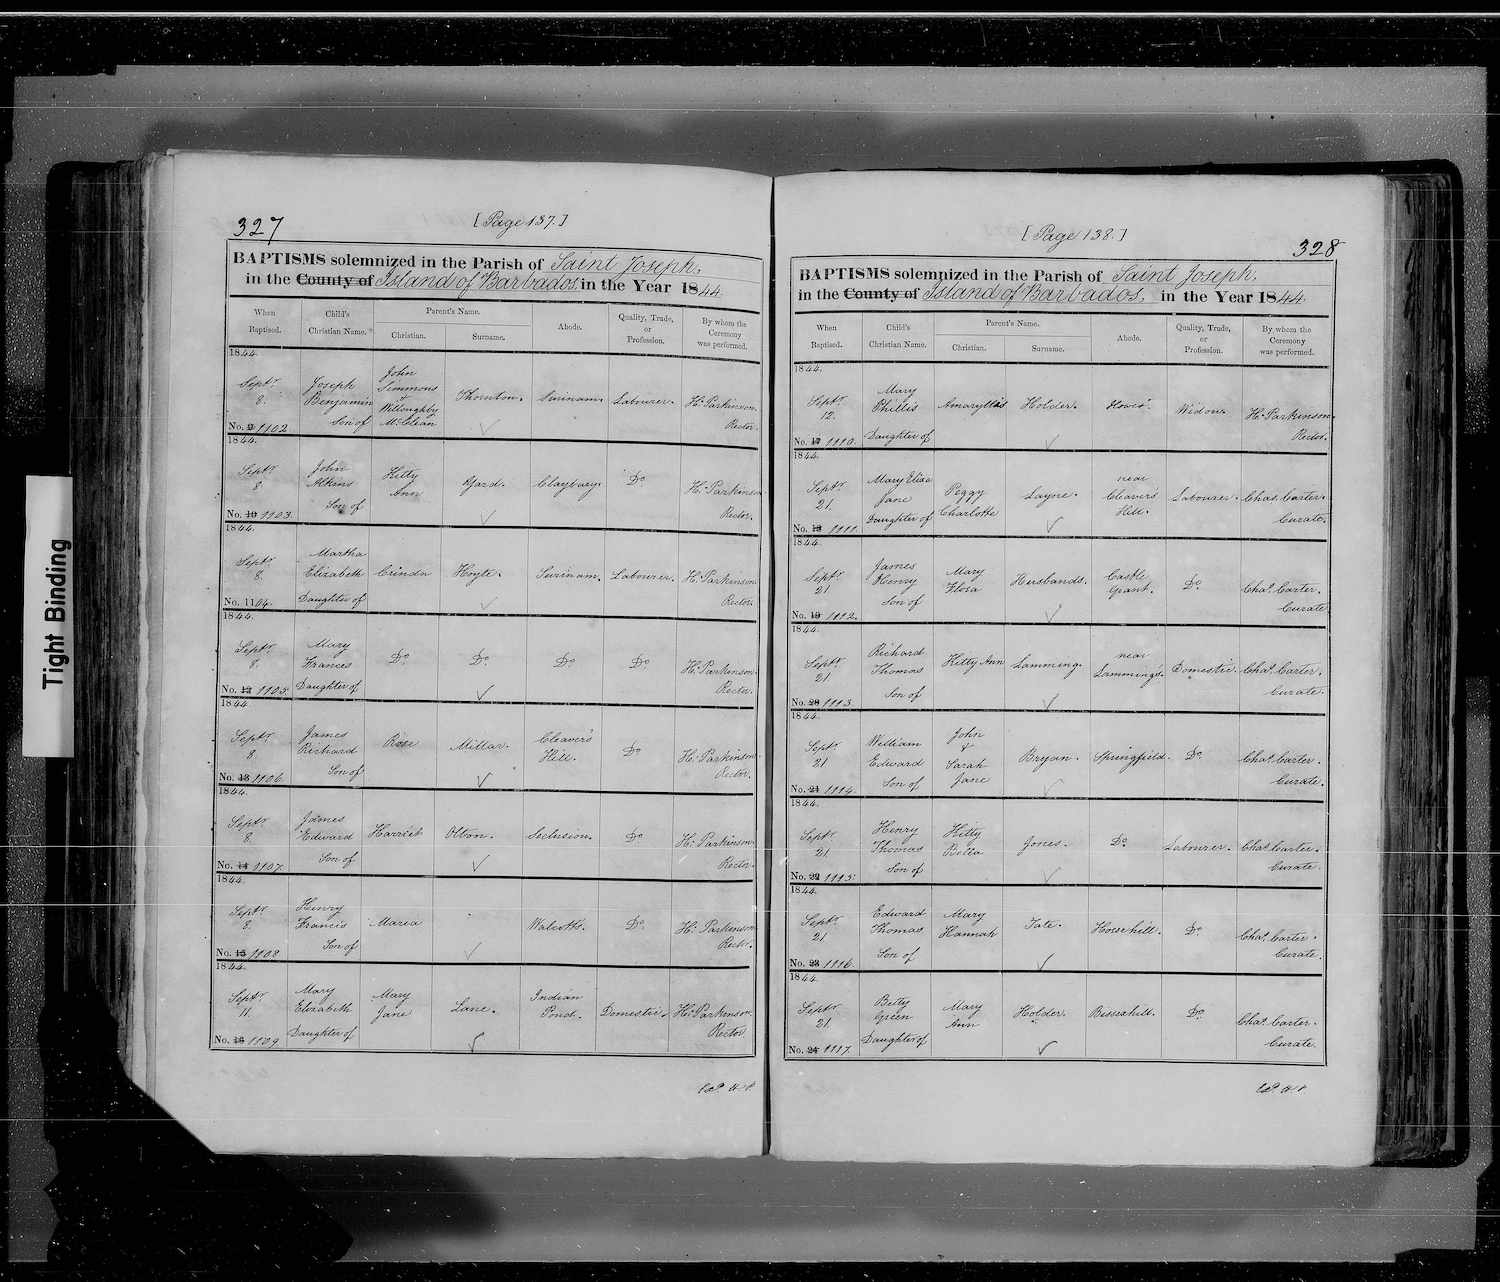 Tight Binding
327
[Page 137.]
BAPTISMS solemnized in the Parish of Saint Joseph,
in the County of Island of Barbados in the Year 1844
When Baptised.
Child's Christian Name.
Parent's Name.
Christian.
Surname.
Abode.
Quality, Trade, or Profession.
By whom the Ceremony was performed.
1844.
Septr 8. Joseph Benjamin Son of John Simmons & Willoughby McClean Thornton. Surinam. Labourer. H. Parkinson Rector.
No. 9 1102
1844.
Septr 8 John Atkins Son of Kitty Ann Yard. Claybury. Do H. Parkinson Rector.
No. 10 1103.
1844.
Septr 8. Martha Elizabeth Daughter of Hoyte. Surinam. Labourer. H. Parkinson Rector.
No. 1104.
1844.
Septr 8. Mary Frances Daughter of Do Do Do Do H. Parkinson Rector.
No. 12 1105.
1844
Septr 8 James Richard Son of Rose Millar. Cleaver's Hill. Do H. Parkinson Rector.
No. 13 1106.
1844.
Septr 8. James Edward Son of Harriet Olton. Seclusion. Do H. Parkinson Rector.
No. 14 1107.
1844.
Septr 8. Henry Francis Son of Maria Walcotts. Do H. Parkinson Rectr.
No. 15 1108
1844.
Septr 11. Mary Elizabeth Daughter of Mary Jane Lane. Indian Pond. Domestic. H. Parkinson Rector.
No. 16 1109
[Page 138.]
328
BAPTISMS solemnized in the Parish of Saint Joseph,
in the County of Island of Barbados, in the Year 1844.
When Baptised.
Child's Christian Name.
Parent's Name.
Christian.
Surname.
Abode.
Quality, Trade, or Profession.
By whom the Ceremony was performed.
1844.
Septr 12. Mary Phillis Daughter of Amaryllis Holder. Widow. H. Parkinson Rector.
No. 17 1110.
1844.
Septr 21. Mary Eliza Jane Daughter of Peggy Charlotte Layne. near Cleavers Hill. Labourer. Chas. Carter. Curate.
No. 18 1111.
1844.
Septr 21 James Henry Son of Mary Flora Husbands. Castle Grant. Do Chas. Carter. Curate
No. 19 1112.
1844.
Septr 21 Richard Thomas Son of Kitty Ann Lamming. near Lamming's. Domestic. Chas. Carter. Curate.
No. 20 1113
1844.
Septr 21 William Edward Son of John & Sarah Jane Bryan. Springfield. Do Chas. Carter. Curate.
No. 21 1114.
1844.
Septr 21 Henry Thomas Son of Kitty Bella Jones. Do Labourer. Chas. Carter. Curate.
No. 22 1115.
1844.
Septr 21 Edward Thomas Son of Mary Hannah Tate. Horsehill. Do Chas. Carter. Curate.
No. 23 1116.
1844.
Septr 21 Betty Green Daughter of Mary Ann Holder. Bissexhill. Do Chas. Carter. Curate.
No. 24 1117.